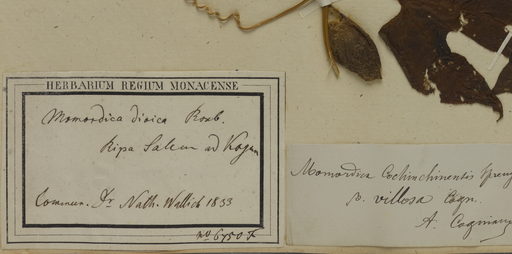 HERBARIUM REGIUM MONACENSE
Momordica dioica Roxb.
Ripa Saluen ad Kogun
Commun. Dr Nath. Wallich 1833
no 6750 F.
Momordica Cochinchinensis Spreng
v. villosa Cogn.
A. Cogniaux